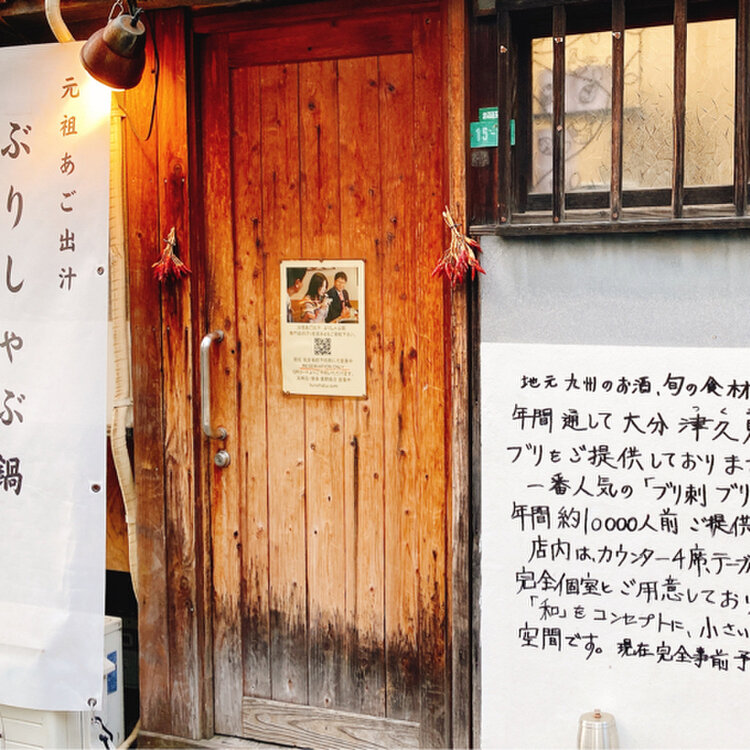 元祖あご出汁
ぶりしゃぶ鍋
RESERVATION ONLY
15
地元 九州のお酒、旬の食材
年間 通して 大分 津久
ブリをご提供しておりま
一番人気の「ブリ刺 ブリ
年間 約10000人前 ご提供
店内は、カウンター4席、テーブ
完全個室と ご用意しており
「和」を コンセプトに、小さい
空間です。 現在完全事前予